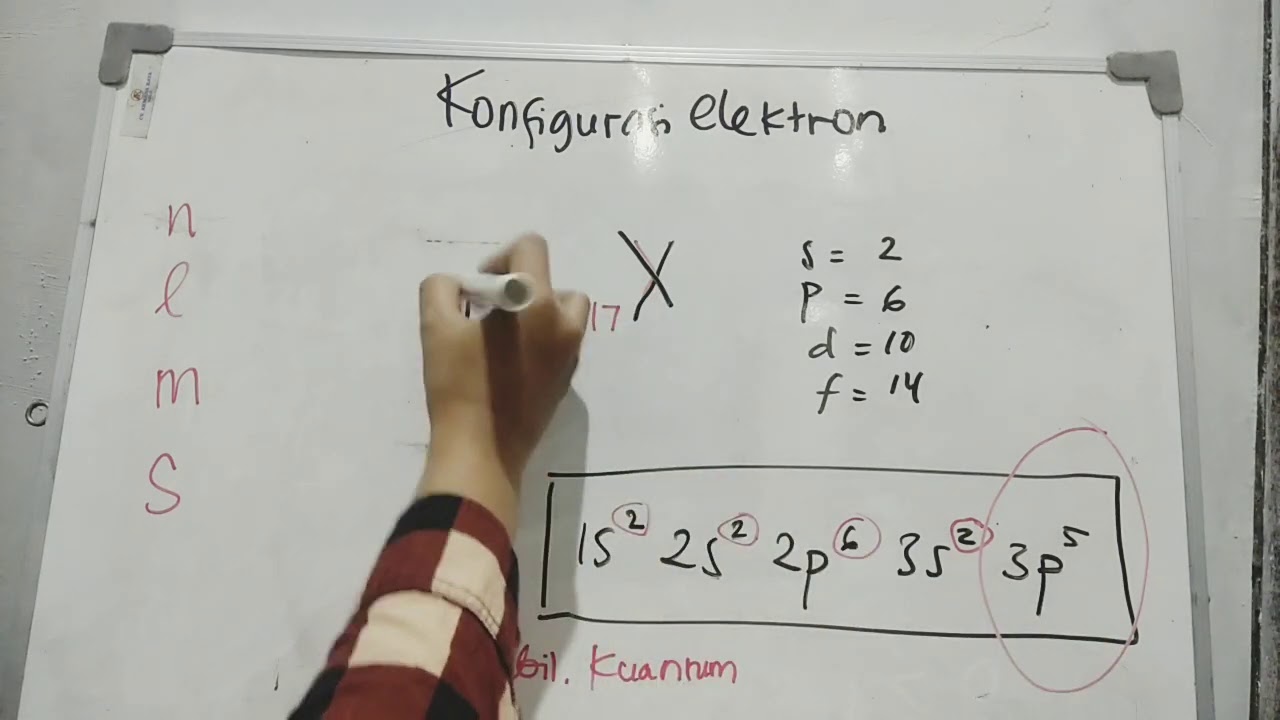 Konfigurasi elektron
n
l
m
s
17 X
s = 2
p = 6
d = 10
f = 14
1s² 2s² 2p⁶ 3s² 3p⁵
Bil. Kuantum